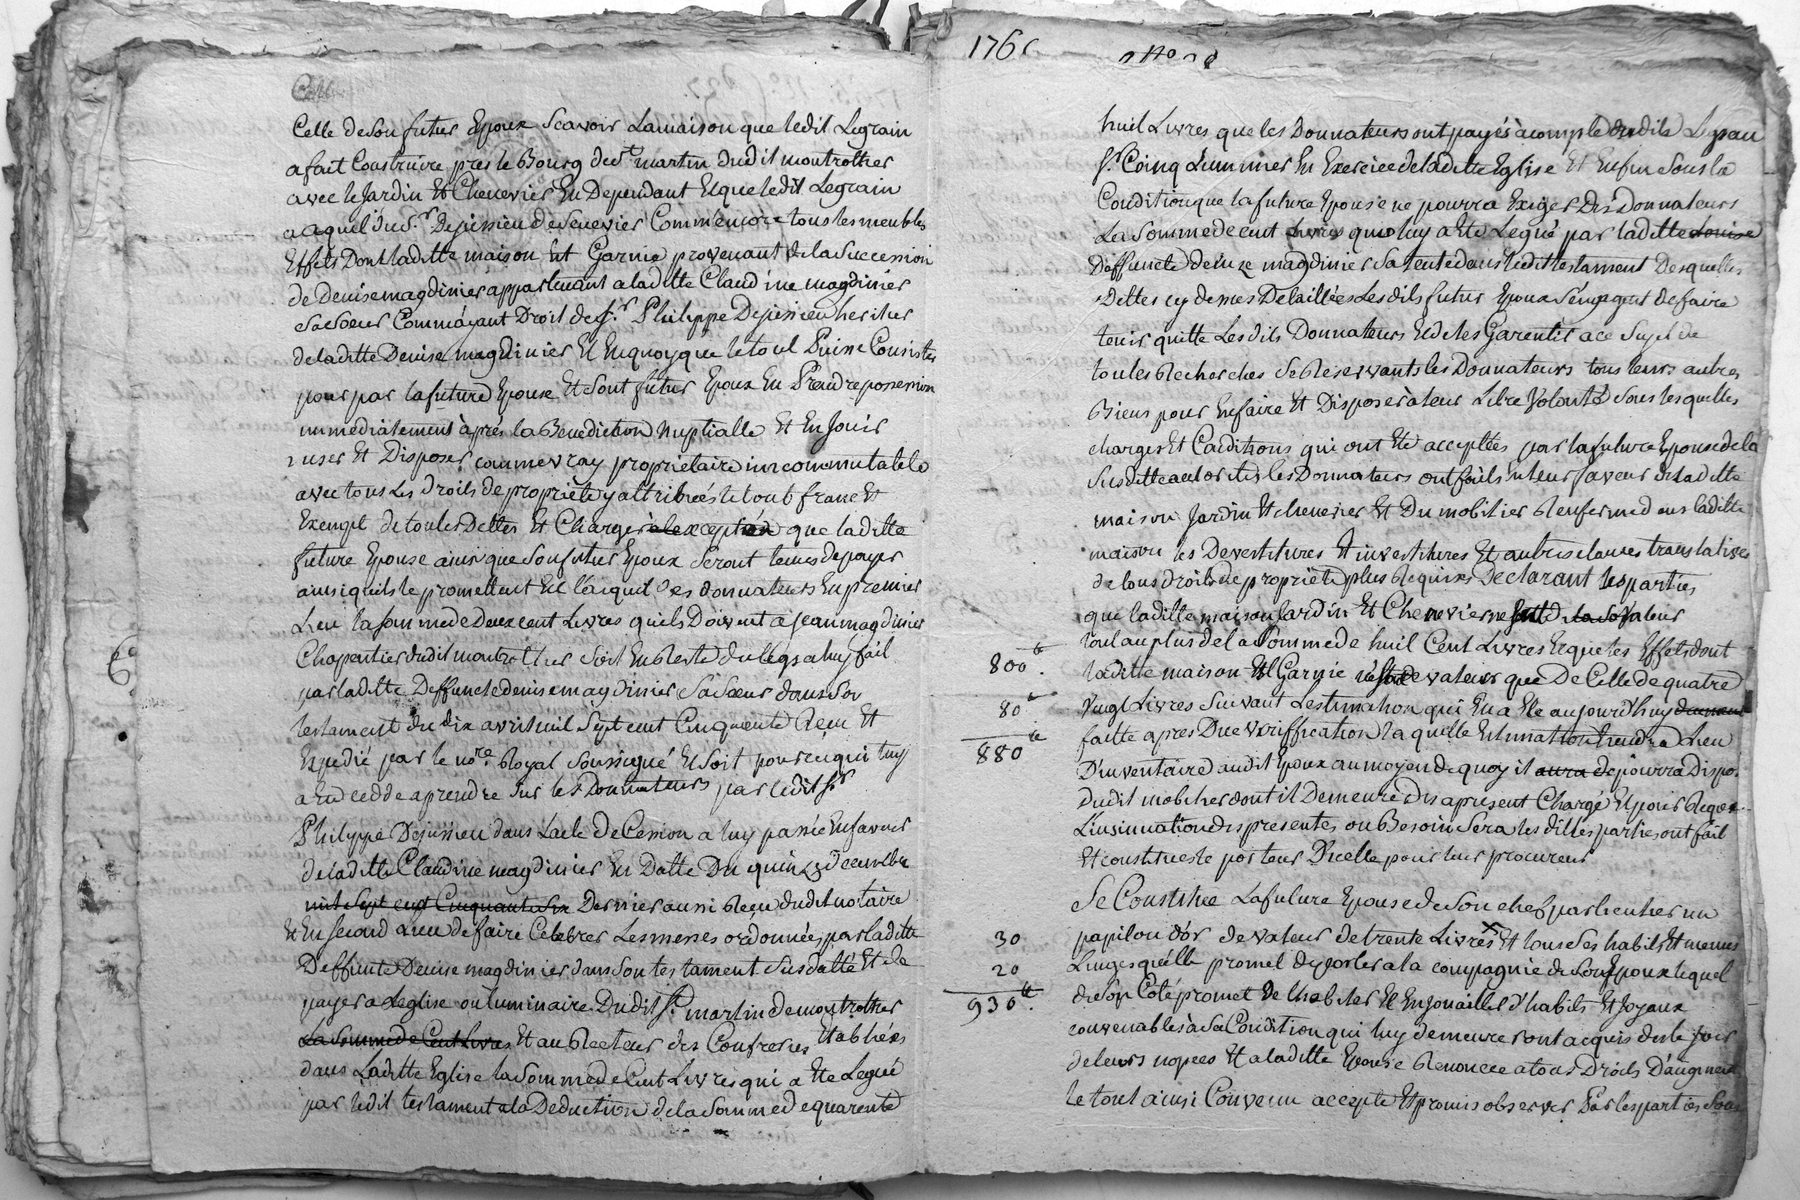 Celle de son futur Epoux Scavoir La maison que ledit Legrain
a fait Construire pres le Bourg de st martin dudit montrottier
avec le Jardin Et Chenevier En Dependant Et que ledit Legrain
a aquit du Sr. Dejussieu de Senevier Comm'encore tous les meubles
Effets Dont laditte maison Est Garnie provenant de la Succession
de Denise magdinier appartenant a laditte Claudine magdinier
Sa Soeur Comm'ayant Droit de Sr. Philippe Dejussieu heritier
de laditte Denise magdinier Et En quoy que le tout Puisse Consister
pour par la future Epouse Et Sont futur Epoux En Prendre possession
immediatement après la Benediction Nuptialle Et En Jouir
user Et Disposer comme vray proprietaire incommutable
avec tous Les droits de proprieté y attribués le tout franc Et
Exempt de toutes Dettes Et Charges à lexception que laditte
future Epouse ainsi que Son futur Epoux Seront tenus de payer
ainsi quils le promettent Et l'acquit des donnateurs En premier
Lieu la somme de Deux cent Livres quils Doivent a Jean magdinier
Charpentier dudit montrottier Soit En Reste du legs a luy fait
par laditte Deffuncte denise magdinier Sa Soeur dans Son
testament du dix avril mil Sept cent Cinquente Reçu Et
Expedié par le nore. Royal Soussigné Et Soit pour ce qui luy
a Eté cedé a prendre Sur les Donnateurs par ledit Sr
Philippe Dejussieu dans L'acte de Cession a luy passée En faveur
de laditte Claudine magdinier En Datte Du quinze Decembre
mil Sept cent Cinquante Six Dernier aussi Reçu dudit notaire
Et En Second Lieu de faire Celebrer Les messes ordonnées par laditte
Deffunte Denise magdinier dans Son testament Susdatté Et de
payer a Leglise ou luminaire Dudit St. martin de montrottier
La Somme de Cent Livres Et au Recteur des Confreries Etablies
dans Laditte Eglise la Somme de Cent Livres qui a Eté Legué
par ledit testament a la Deduction de la Somme de quarente
1766
huit Livres que les Donnateurs ont payés à compte
St. Coinq Lumnier En Exercice de laditte Eglise Et Enfin Sous la
Condition que la future Epouse ne pourra Exiger Des Donnateurs
La Somme de cent Livres qui luy a Eté Legué par laditte Louise
Deffuncte denize magdinier Sa tente dans ledit testament Desquelles
Dettes cy dessus Detaillées Les dits futur Epoux S'engagent de faire
tenir quitte Les dits Donnateurs Et de les Garentir a ce Sujet de
toutes Recherches Se Reservants les Donnateurs tous leurs autres
Biens pour En faire Et Disposer à leur Libre Volonté Sous lesquelles
charges Et Conditions qui ont Eté acceptées par la future Epouse de la
Susditte autorité les Donnateurs ont faits En leur faveur De laditte
maison Jardin Et chenevier Et Du mobilier Renfermé dans laditte
maison les Devestitures Et investitures Et autres clauses translatives
de tous droits de proprieté plus Requises Declarant les parties
que laditte maison Jardin Et Chenevier ne Sont de la Valeur
tout au plus de la Somme de huit Cent Livres Et que les Effets dont
800 tt.
laditte maison Est Garnie n'est de valeur que De Celle de quatre
80 tt
Vingt Livres Suivant Lestimation qui En a Eté aujourd'huy
880 tt
faitte apres Due veriffication laquelle Estimation tiendra Lieu
D'inventaire audit Epoux au moyen de quoy il aura de pourra Dispo.
Dudit mobilier dont il Demeure des a present Chargé Et pour Requer
L'insinuation des presentes ou Besoin Sera les dittes parties ont fait
Et constitué le porteur D'icelle pour leur procureur
Se Constitue La future Epouse de Son chef particulier un
30
papillon d'or de valeur de trente Livres Et tous Ses habits Et menus
20
Linges quelle promet d'aporter a la compagnie de Son Epoux lequel
930 tt.
de Son Coté promet de l'habiller Et Enjouailler d'habits Et Joyaux
convenables à Sa Condition qui luy demeureront acquis des le jour
de leurs nopces Et a laditte Epouse Renoncée a tous Droits D'augment
le tout ainsi Convenu accepté Et promis observer Par les parties Sous